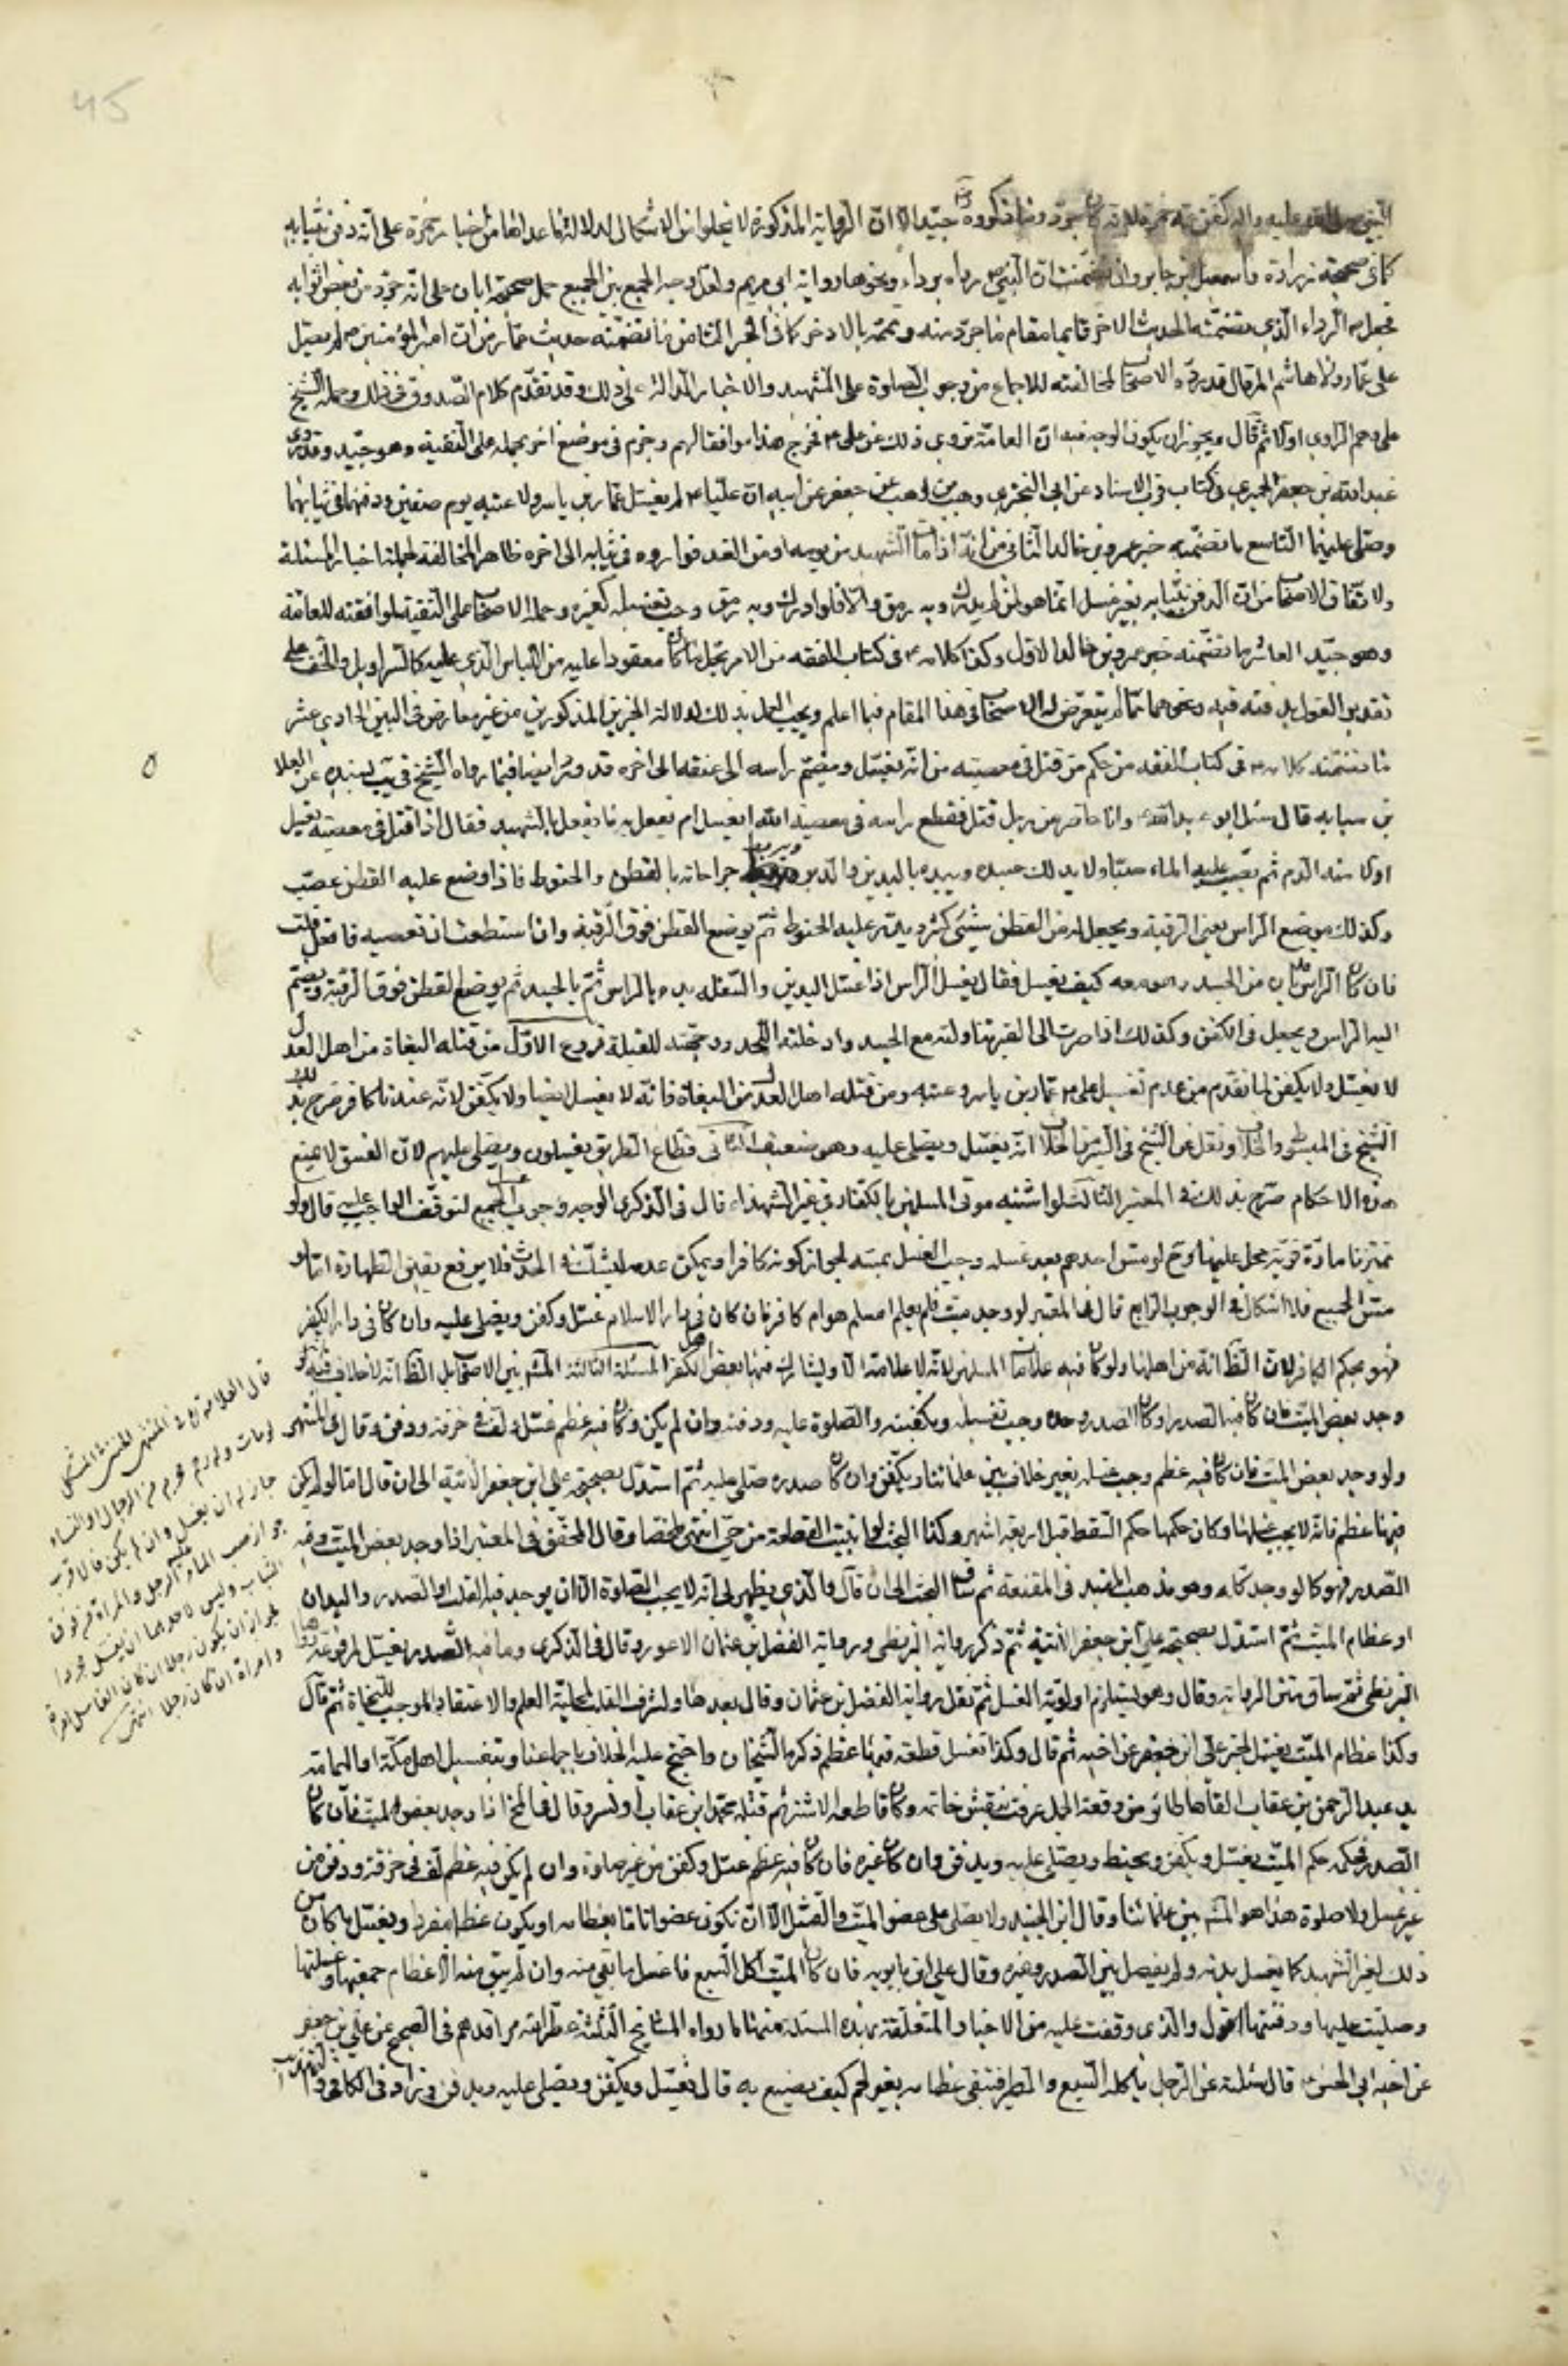 النبي صلى الله عليه واله كفن حمزة لانه كان جرد وما ذكروه جيد الا ان الرواية المذكورة لا تخلوا من الاشكال لدلالتها عداها من اخبار حمزة على انه دفن بثيابه
كما في صحيحة زرارة واسمعيل بن جابر وان تضمنت ان النبي ص رداه برداء ونحوها رواية ابي مريم ولعل وجه الجمع بين الجميع حمل صحيحة ابان على انه جرد من بعض اثوابه
فجعل ص الرداء الذي تضمنته الحديث الاخر قايما مقام ما جرد منه وتممه بالاذخر كما في الخبر الثامن ما تضمنته حديث عمار من ان امير المؤمنين ص لم يغسل
على عمار ولا هاشم المرقال قد رده الاصحاب لمخالفته للاجماع من وجوب الصلوة على الشهيد والاخبار الدالة على ذلك وقد تقدم كلام الصدوق في ذلك وحمله الشيخ
على وهم الراوي اولا ثم قال ويجوز ان يكون الوجه فيه ان العامة تروي ذلك عن علي ع فخرج هذا موافقا لهم وجزم في موضع اخر بحمله على التقية وهو جيد وقد روى
عبد الله بن جعفر الحميري في كتاب قرب الاسناد عن ابي البختري وهب بن وهب عن جعفر عن ابيه ان عليا ع لم يغسل عمار بن ياسر ولا عتبه يوم صفين ودفنهما في ثيابهما
وصلى عليهما التاسع ما تضمنه خبر عمرو بن خالد الثاني من انه اذا مات الشهيد من يومه او من الغد فواروه في ثيابه الى اخره ظاهر المخالفة لجملة اخبار المسئلة
ولاتفاق الاصحاب من ان الدفن بثيابه بغير غسل انما هو لمن لم يدرك وبه رمق والا فلو ادرك وبه رمق وجب تغسيله كغيره وحمله الاصحاب على التقية لموافقته للعامة
وهو جيد العاشر ما تضمنه خبر عمرو بن خالد الاول وكذا كلامه ع في كتاب الفقه من الامر بحل ما كان معقودا عليه من اللباس الذي عليه كالسراويل والخف على
تقدير القول بدفنه فيه ونحوهما مما لم يتعرض له الاصحاب في هذا المقام فيما اعلم ويجب العمل بذلك لدلالة الخبرين المذكورين من غير معارض في البين الحادي عشر
ما تضمنته كلامه ع في كتاب الفقه من حكم من قتل في معصيته من انه يغسل ويضم راسه الى عنقه الى اخره قد ورد ايضا فيما رواه الشيخ في يب بسنده عن العلا
بن سيابه قال سئل ابو عبد الله ع وانا حاضر عن رجل قتل فقطع راسه في معصية الله ايغسل ام يفعل به ما يفعل بالشهيد فقال اذا قتل في معصيته يغسل
اولا منه الدم ثم يصب عليه الماء صبا ولا يدلك جسده ويبدء باليدين والدبر ويربط جراحاته بالقطن والحنوط فاذا وضع عليه القطن عصب
وكذلك موضع الراس يعني الرقبة ويجعل له من القطن شيئ كثير ويذر عليه الحنوط ثم يوضع القطن فوق الرقبة وان استطعت ان تعصبه فافعل قلت
فان كان الراس قد بان من الجسد وهو معه كيف يغسل فقال يغسل الراس اذا غسل اليدين والسفله بدء بالراس ثم بالجسد ثم يوضع القطن فوق الرقبة ويضم
اليه الراس ويجعل في الكفن وكذلك اذا صرت الى القبر تناولته مع الجسد وادخلته اللحد ووجهته للقبلة فروع الاول من قتله البغاة من اهل العدل
لا يغسل ولا يكفن لما تقدم من عدم تغسيل علي ع عمار بن ياسر وعتبه ومن قتله اهل العدل من البغاة فانه لا يغسل ايضا ولا يكفن لانه عندنا كافر صرح بذلك
الشيخ في المبسوط والخلاف ونقل عن الشيخ في السير من الخلاف انه يغسل ويصلى عليه وهو ضعيف الثاني قطاع الطريق يغسلون ويصلى عليهم لان الفسق لا يمنع
هذه الاحكام صرح بذلك في المعتبر الثالث لو اشتبه موتى المسلمين بالكفار في غير الشهداء قال في الذكرى الوجه وجوب غسل الجميع لتوقف الواجب عليه قال ولو
تميز بامارة قوية عمل عليها وح لو مس احدهم بعد غسله وجب الغسل بمسه لجواز كونه كافرا ويمكن عدمه للشك في الحدث فلا يرفع يقين الطهارة اما لو
مس الجميع فلا اشكال في الوجوب الرابع قال في المعتبر لو وجد ميت فلم يعلم امسلم هو ام كافر فان كان في دار الاسلام غسل وكفن ويصلى عليه وان كان في دار الكفر
فهو بحكم الكافر لان الظ انه من اهلها ولو كان فيه علامات المسلمين لانه لا علامة الا ويشارك فيها بعض اهل الكفر المسئلة الثالثة المشهور بين الاصحاب بل الظ انه لا خلاف فيه انه لو
وجد بعض الميت فان كان فيه الصدر او كان الصدر وحده وجب تغسيله وتكفينه والصلوة عليه ودفنه وان لم يكن وكان فيه عظم غسل ولف في خرقة ودفن وقال في المنتهى
ولو وجد بعض الميت فان كان فيه عظم وجب غسله بغير خلاف بين علمائنا ويكفن وان كان صدره صلى عليه ثم استدل بصحيحة علي ابن جعفر الاتية الى ان قال اما لو لم يكن
فيها عظم فانه لا يجب غسلها وكان حكمها حكم السقط قبل اربعة اشهر وكذا البحث لو ابينت القطعة من حي انتهى ملخصا وقال المحقق في المعتبر اذا وجد بعض الميت وفيه
الصدر فهو كما لو وجد كله وهو مذهب المفيد في المقنعة ثم ساق البحث الى ان قال والذي يظهر لي انه لا يجب الصلوة الا ان يوجد فيه القلب او الصدر واليدان
او عظام الميت ثم استدل بصحيحة علي بن جعفر الاتية ثم ذكر رواية البزنطي ورواية الفضل بن عثمان الاعور وقال في الذكرى وما فيه الصدر يغسل لمرفوعة رواها
البزنطي ثم ساق متن الرواية وقال وهو يستلزم اولوية الغسل ثم نقل رواية الفضل بن عثمان وقال بعدها ولشرف القلب لمحلية العلم والاعتقاد الموجب للنجاة ثم قال
وكذا عظام الميت يغسل لخبر علي ابن جعفر عن اخيه ثم قال وكذا تغسل قطعة فيها عظم ذكره الشيخان واحتج عليه في الخلاف باجماعنا وبتغسيل اهل مكة او اليمامة
يد عبد الرحمن بن عتاب القاها طائر من وقعة الجمل عرفت بنقش خاتمه وكان قاطعها الاشتر ثم قتله فحملها عقاب او نسر وقال في الخ اذا وجد بعض الميت فان كان
الصدر فحكمه حكم الميت يغسل ويكفن ويحنط ويصلى عليه ويدفن وان كان غيره فان كان فيه عظم غسل وكفن من غير صلوة وان لم يكن فيه عظم لف في خرقة ودفن من
غير غسل ولا صلوة هذا هو المشهور بين علمائنا وقال ابن الجنيد ولا يصلى على عضو الميت والقتيل الا ان تكون عضوا تاما بعظامه او يكون عظما مفردا ويغسل ما كان من
ذلك لغير الشهيد كما يغسل بدنه ولم يفصل بين الصدر وغيره وقال علي ابن بابويه فان كان الميت اكله السبع فاغسل ما بقي منه وان لم يبق منه الا عظام جمعتها وغسلتها
وصليت عليها ودفنتها اقول والذي وقفت عليه من الاخبار المتعلقة بهذه المسئلة منها ما رواه المشايخ الثلثة عطر الله مراقدهم في الصحيح عن علي بن جعفر
عن اخيه ابي الحسن ع قال سئلته عن الرجل ياكله السبع والطير فتبقى عظامه بغير لحم كيف يصنع به قال يغسل ويكفن ويصلى عليه ويدفن وزاد في الكافي والتهذيب
قال العلامة ره في المنتهى الخنثى المشكل
لو مات وله رحم محرم من الرجال او النساء
جاز له ان يغسل وان لم يكن فالاقرب
جواز صب الماء عليه للرجل والمراة من فوق
الثياب وليس لاحدهما ان يغسل مجردا
لجواز ان يكون رجلا ان كان الغاسل امراة
وامراة ان كان رجلا انتهى
45